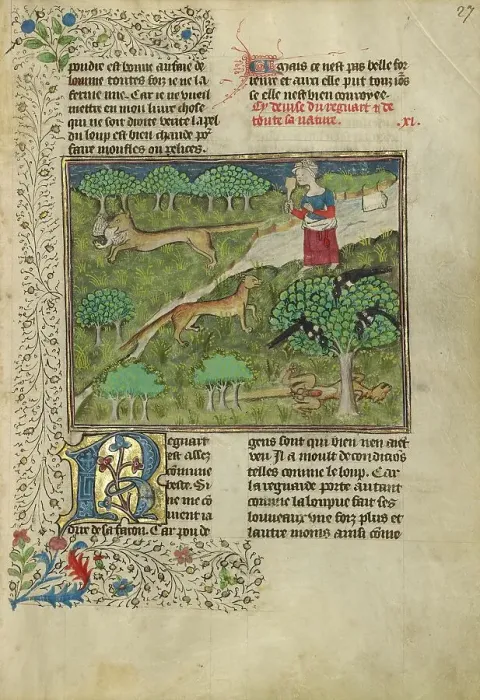 27
poudre est bonne au fiane de
lomme toutes foiz ie ne la
ferme mie. Car ie ne vueil
mettre en mon liure chose
qui ne soit droite verite la pel
du loup est bien chaude po
faire moufles ou pelices.
Mais ce nest pas belle for
reure et aussi elle put touzios
se elle nest bien conroyee.
Cy deuise du regnart et de
toute sa nature. .xi.
Regnart
est assez
comune
beste. Si
ne me co
uient ia
dire de sa facon. Car pou de
gens sont qui bien nen aiet
veu. Il a moult de condicios
telles comme le loup. Car
la regnarde porte autant
comme la loupue fait ses
louueaux vne foiz plus et
lautre moins ainsi come